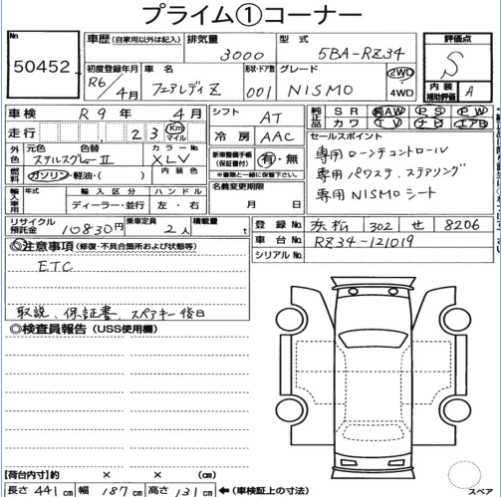 プライム①コーナー
No
50452
車歴(自家用以外は記入) 排気量 3000 型式 5BA-RZ34
初度登録年月 R6/4月 車名 フェアレディZ 形状・ドア数 001 グレード NISMO 2WD・4WD
評価点 S
内装補助評価 A
車検 R9年4月 シフト AT
走行 23 Km マイル 冷房 AAC
純正品 SR 純AW PS PW
カワ TV ナビ エアB
外色 元色 ステルスグレーII 色替 カラーNo XLV
燃料 ガソリン・軽油・( ) 内装色
新車整備手帳(保証書付) 有・無
※書類と一緒に保管下さい。
セールスポイント
専用ローンチコントロール
専用パワステ、ステアリング
専用NISMOシート
輸入車用 年式 輸入区分 ハンドル
ディーラー・並行 左・右
名義変更期限
月 日
リサイクル預託金 10830円 乗車定員 2人 積載量 t
登録No. 浜松 302 せ 8206
車台No. RZ34-121019
シリアルNo.
◎注意事項(修復・不具合箇所および状態等)
ETC
取説、保証書、スペアキー後日
◎検査員報告(USS使用欄)
【荷台内寸】約 × × (cm)
長さ441cm 幅187cm 高さ131cm ←(車検証上の寸法)
スペア